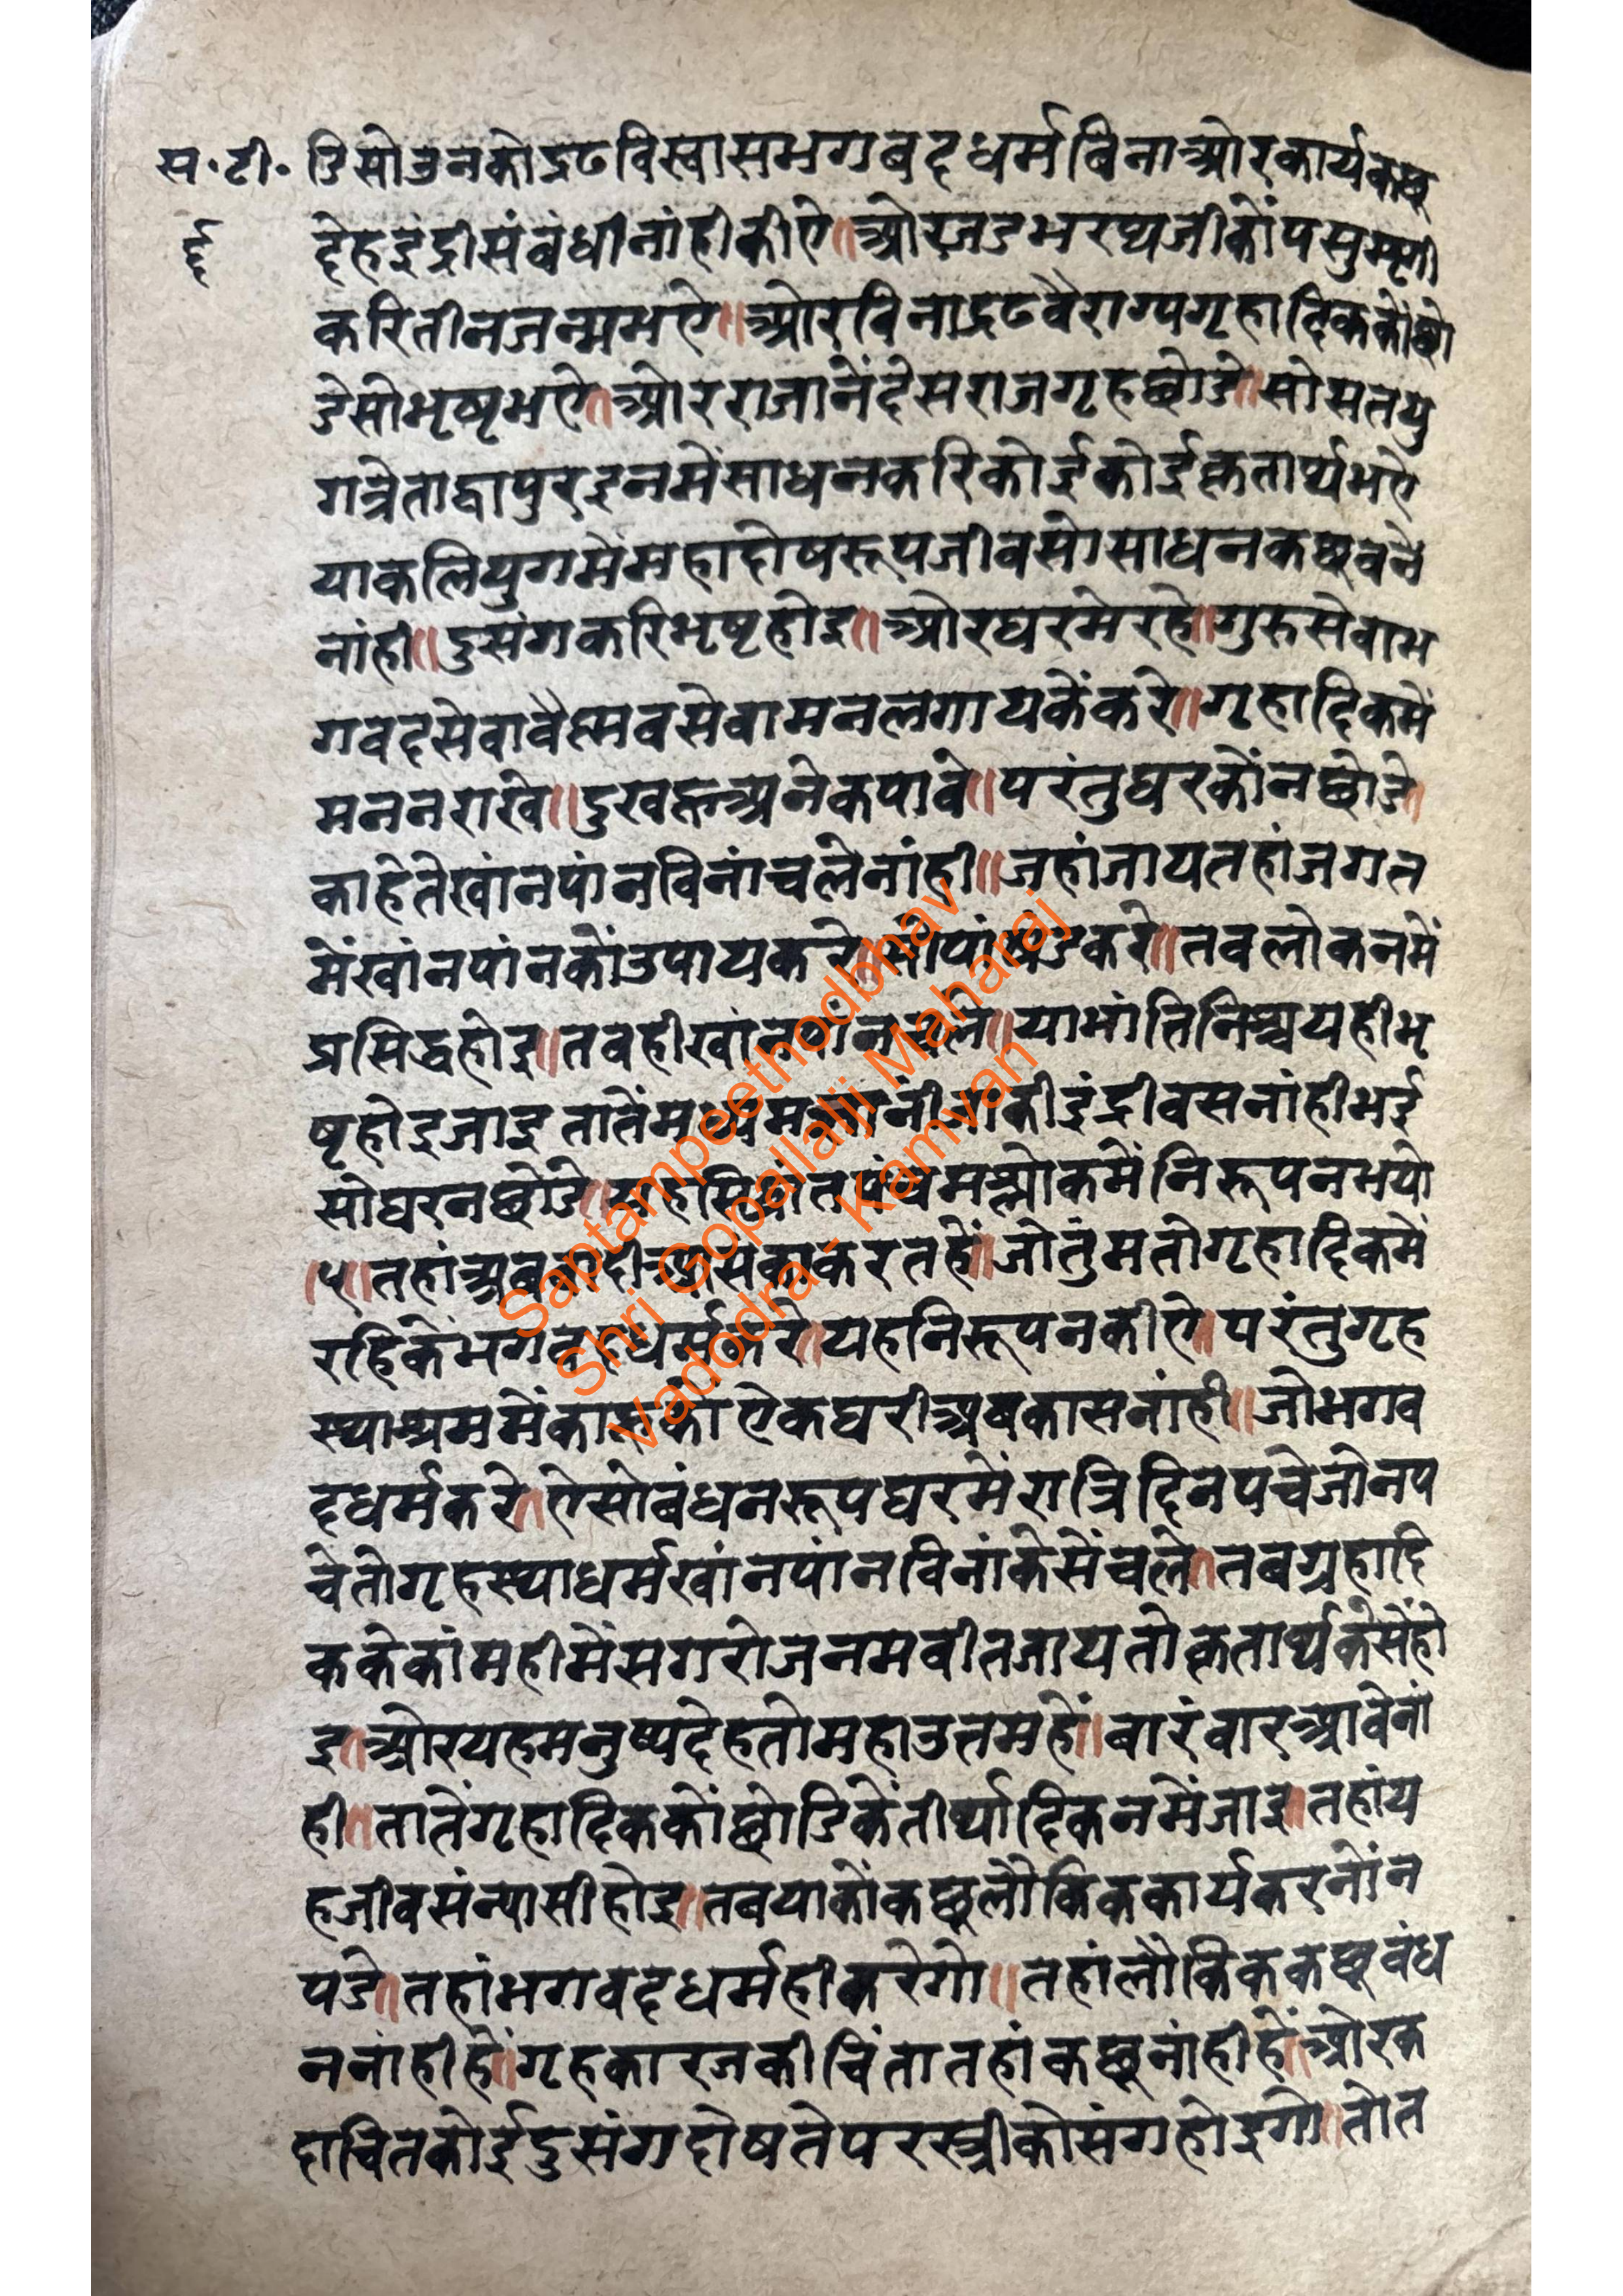 स.टी. डिसोउनकोद्रढविस्वासभगवदधर्मविनाओरकार्यकछू
र्द्द देहइंद्रीसंवंधीनांहीकीऐ॥ओरजडभरथजीकोंपसुमृगी
करितीनजन्मभऐ॥ओरविनाद्रढवैराग्यगृहादिककोंछो
डेसोभृष्टभऐ॥ओरराजानेंदेसराजगृहछोडे॥सोसतयु
गत्रेताद्वापुरइनमेंसाधनकरिकोईकोईकृतार्थभऐ
याकलियुगमेंमहादोषरूपजीवसोसाधनकछूवने
नांही॥दुसंगकरिभृष्टहोइ॥ओरघरमेरहे॥गुरुसेवाभ
गवदसेवावैस्मवसेवामनलगायकेंकरे॥गृहादिकमें
मननराखे॥दुखहूअनेकपावे॥परंतुघरकोंनछोडे॥
काहेतेखांनपांनविनांचलेनांही॥जहांजायतहांजगत
मेंखांनपांनकोंउपायकरे॥सोपांषंडकरे॥तवलोकनमें
प्रसिद्धहोइ॥तवहीखांनपांनचले॥याभांतिनिश्चयहीभृ
ष्टहोइजाइतातेंमध्यमज्ञांनीजाकीइंद्रीवसनांहीभई
सोघरनछोडे॥यहसिद्धांतपंचमश्लोकमेंनिरूपनभयो
॥५॥तहांअववादीआसंकाकरतहें॥जोतुंमतोगृहादिकमें
रहिकेंभगवदधर्मकरे॥यहनिरूपनकीऐ॥परंतुगृह
स्थाश्रममेंकाहूकोंऐकघरीअवकासनांही॥जोभगव
दधर्मकरे॥ऐसोबंधनरूपघरमेंरात्रिदिनपचेजोनप
चेतोगृहस्थाधर्मखांनपांनविनांकेसेंचले॥तबग्रहादि
ककेकांमहीमेंसगरोजनमवीतजायतोकृतार्थकेसेंहो
इ॥ओरयहमनुष्यदेहतोमहाउतमहें॥बारंवारआवेनां
ही॥तातेंगृहादिककोंछोडिकेंतीर्थादिकनमेंजाइ॥तहांय
हजीवसंन्यासीहोइ॥तबयाकोंकछूलौकिककार्यकरनोंन
पडे॥तहांभगवदधर्महीकरेगो॥तहांलौकिककछूवंध
ननांहीहें॥गृहकारजकीचिंतातहांकछूनांहीहें॥ओरक
दाचितकोईदुसंगदोषतेपरस्त्रीकोसंगहोइगो॥तोत
Saptampeethodbhav
Shri Gopallalji Maharaj
Vadodra - Kamvan